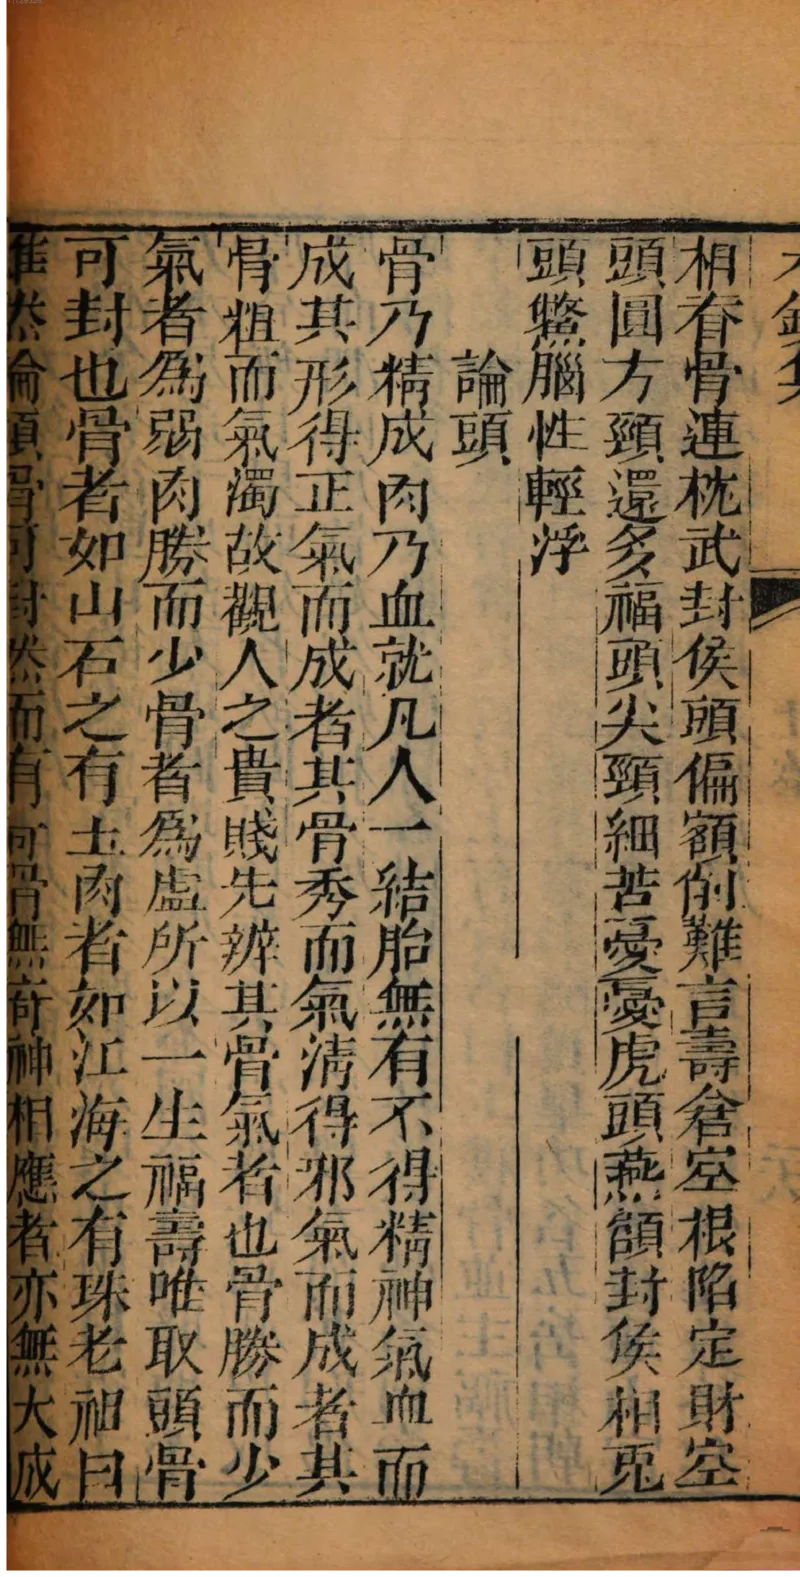 相脊骨連枕武封侯頭偏額削難言壽倉空根陷定財空
頭圓方頸還多福頭尖頸細苦憂憂虎頭燕頷封侯相兎
頭鱉腦性輕浮
論頭
骨乃精成肉乃血就凡人一結胎無有不得精神氣血而
成其形得正氣而成者其骨秀而氣清得邪氣而成者其
骨粗而氣濁故觀人之貴賤先辨其骨氣者也骨勝而少
氣者為弱肉勝而少骨者為虛所以一生福壽唯取頭骨
可封也骨者如山石之有土肉者如江海之有珠老祖曰
雖然論頭骨可封然而有奇骨無奇神相應者亦無大成